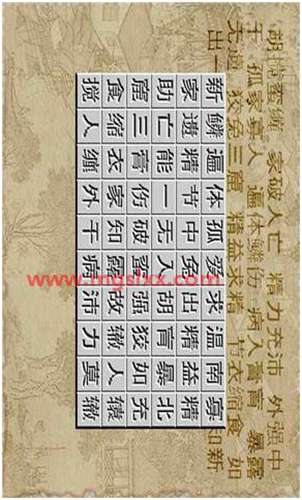 胡搅蛮缠 家破人亡 精力充沛 外强中
干 孤家寡人 遍体鳞伤 病入膏肓 暴露
无遗 狡兔三窟 精益求精 节衣缩食 如
出一 知新
新鳞遍体孤爱求温南寡
家遗精节中兔出精益精
助亡能一无入胡肓暴北
窟三膏伤破蛮强狡如充
食缩衣家知露故辙人辕
搅人缠外干病沛力莫辙
www.mgsixx.com